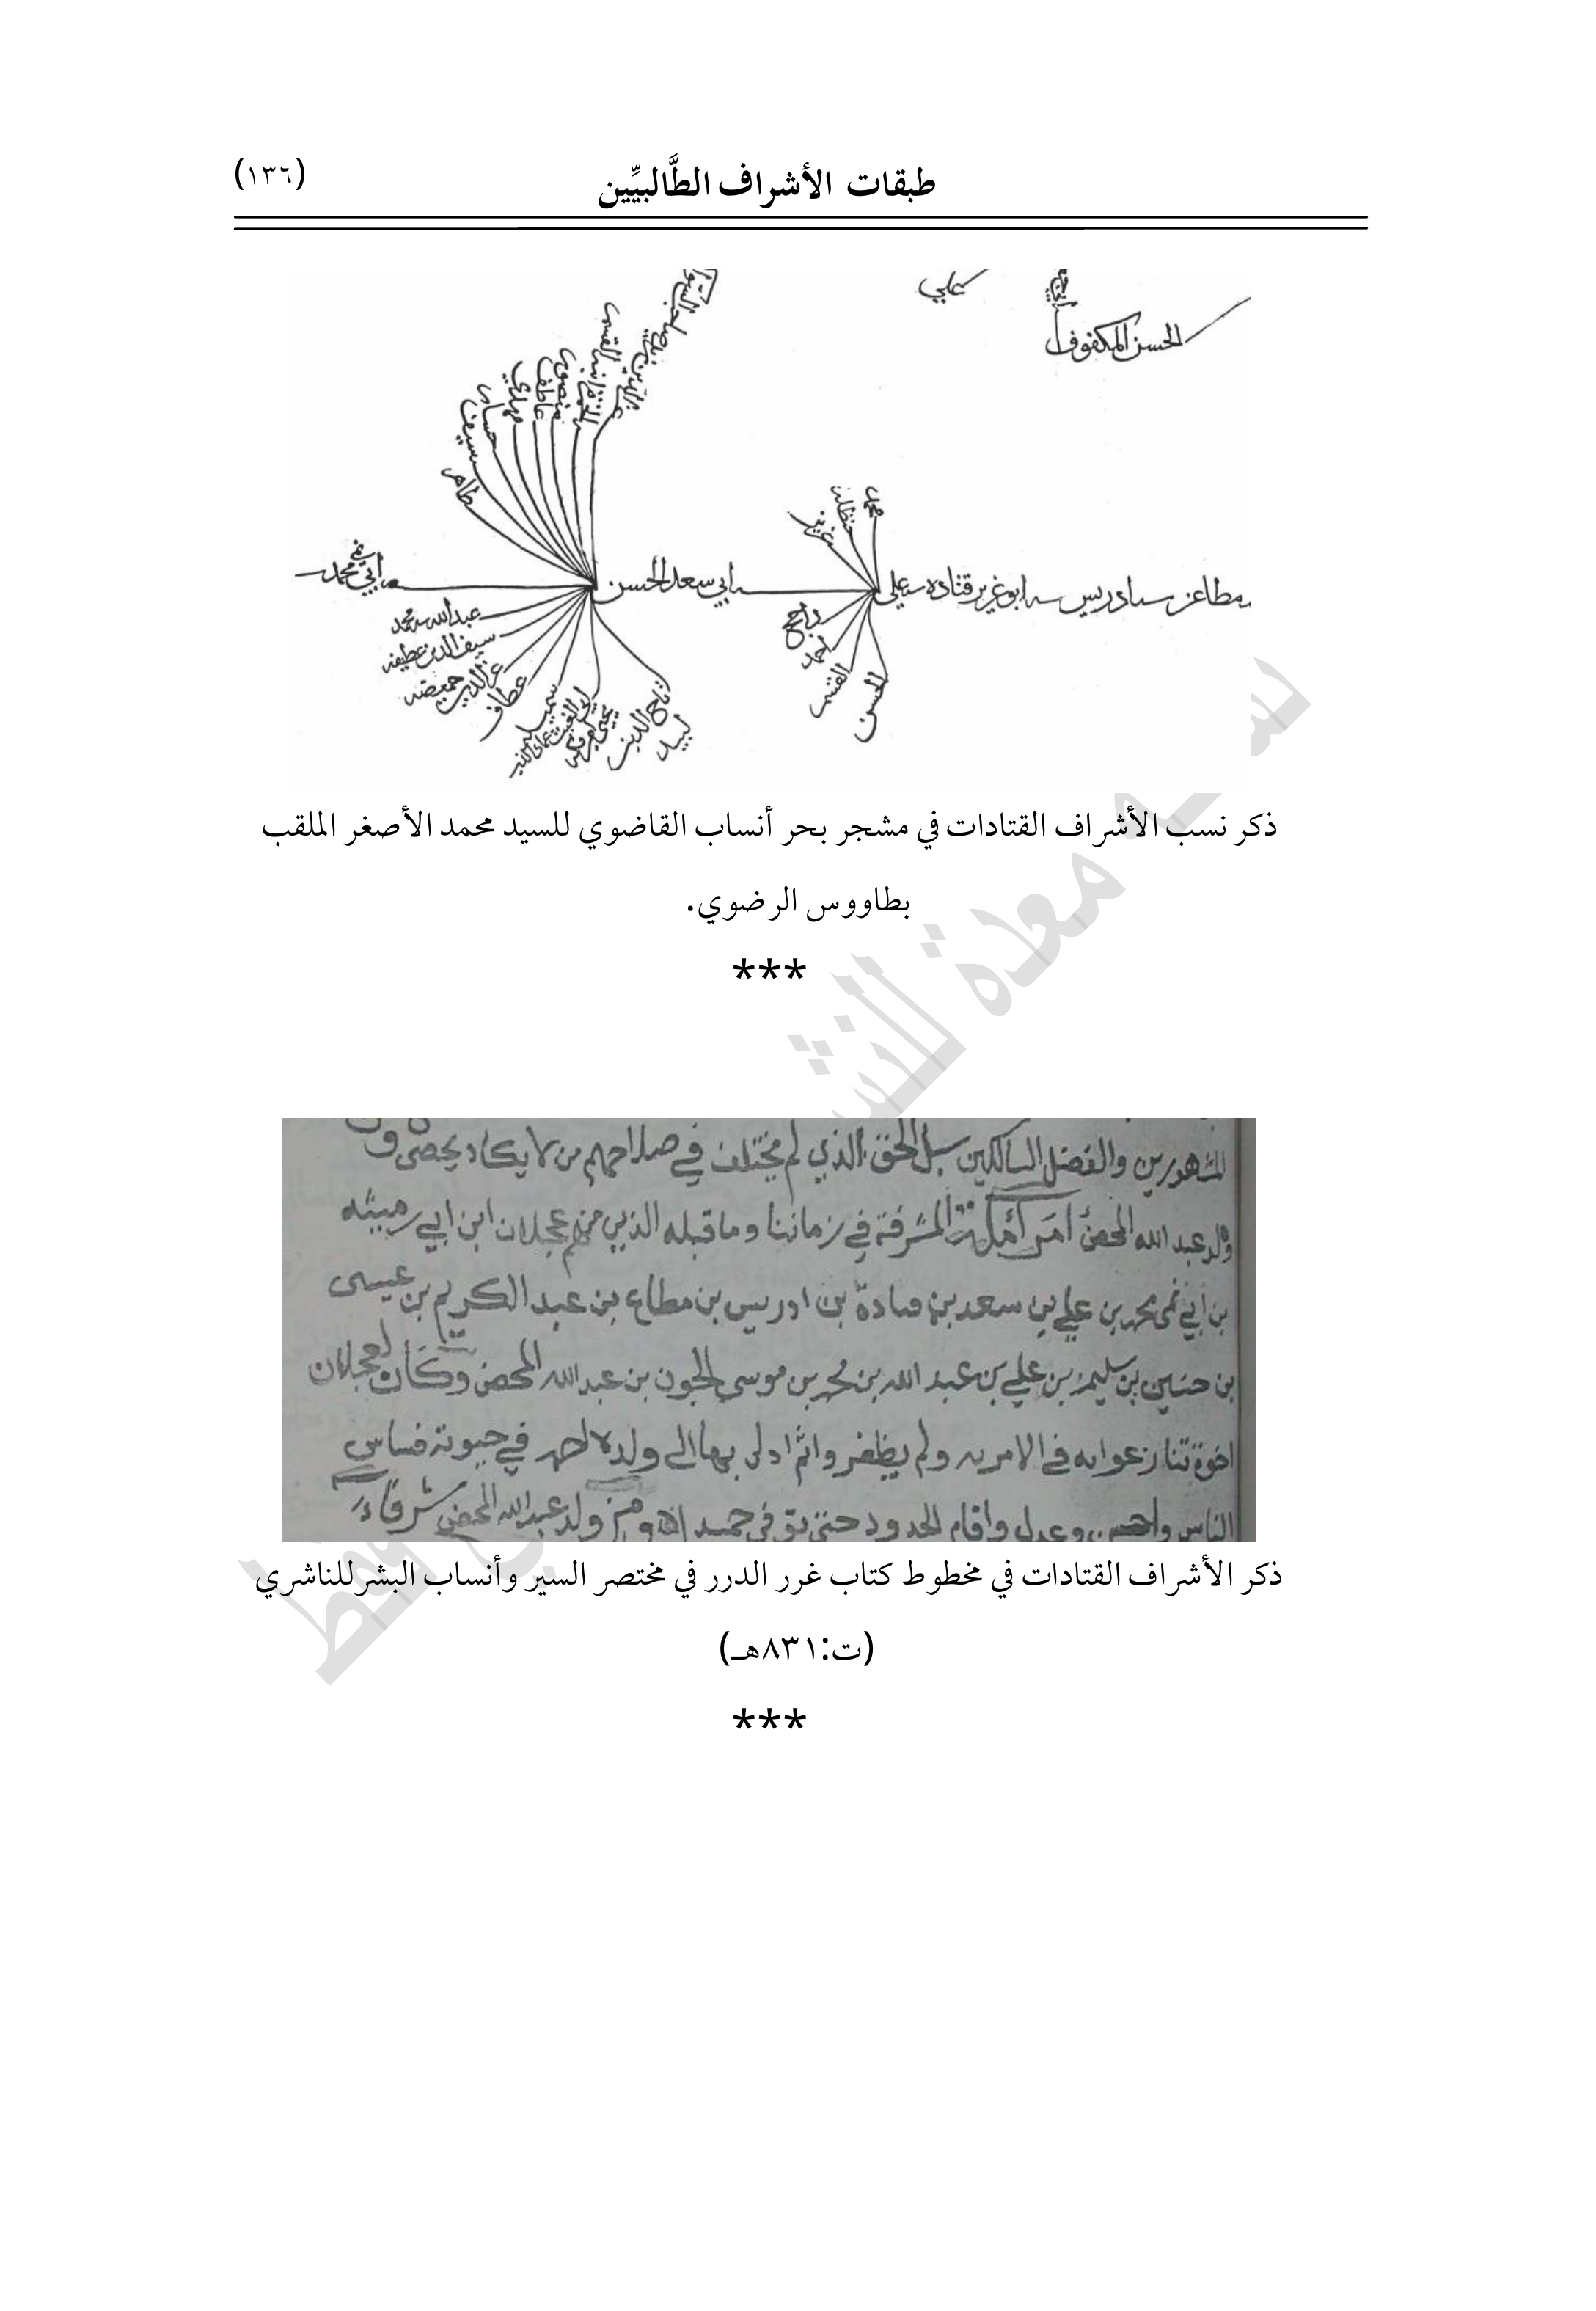 طبقات الأشراف الطَّالبيِّين
(١٣٦)
علي
الحسن المكفوف
مطاعن بن ادريس بن ابو غرير قتاده بن علي
محمد
حنظله
راجح
احمد
القسم
الحسن
بن ابي سعد الحسن
منصور
عاطف
مهدي
سيف
ظاهر
بن ابي نمي محمد
عبد الله بن محمد
سيف الدين عطيفه
عز الدين حميضه
عطاف
تاج الدين
لبيد
ذكر نسب الأشراف القتادات في مشجر بحر أنساب القاضوي للسيد محمد الأصغر الملقب
بطاووس الرضوي.
***
المشهورين والفضل السالكين سبل الحق الذي لم يختلف في صلاحهم من لا يكاد يحصى ومن
ولد عبد الله المحض أمراء مكة المشرفة في زماننا وما قبله الذين منهم عجلان ابن ابي رميثه
بن ابي نمي محمد بن علي بن سعد بن قتادة بن ادريس بن مطاع بن عبد الكريم بن عيسى
بن حنين بن سليمن بن علي بن عبد الله بن محمد بن موسى الجون بن عبد الله المحض وكان لعجلان
اخوة تنازعوا به في الامر به ولم يظفر وانما ادلى بها الى ولده احمد في حيوته فساس
الناس واحسن وعدل واقام الحدود حتى توفي حميد ومن ولد عبد الله المحض شرفاء
ذكر الأشراف القتادات في مخطوط كتاب غرر الدرر في مختصر السير وأنساب البشر للناشري
(ت:٨٣١هـ)
***
نسخة معدة للنشر فقط